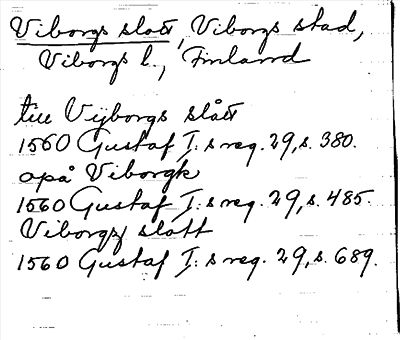 Viborgs slott, Viborgs stad,
Viborgs l., Finland
till Vijborgs slått
1560 Gustaf I:s reg. 29, s. 380.
opå Viborgk
1560 Gustaf I:s reg. 29, s. 485.
Viborgz slott
1560 Gustaf I:s reg. 29, s. 689.